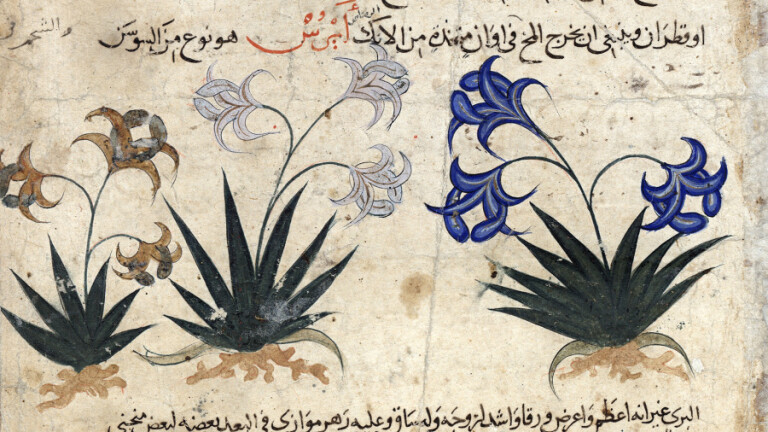 او قطران وينبغى ان يخرج المخ فى اوان متخذه من الانك أيرس هو نوع من السوسن
والشحم
البرى غير انه اعظم واعرض ورقا واشد لزوجة وله ساق وعليه زهر موازى فى البعد بعضه لبعض منحنى